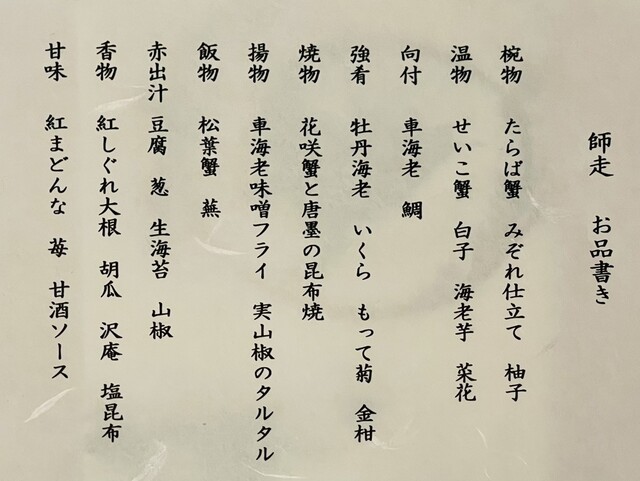 師走　お品書き
椀物　たらば蟹　みぞれ仕立て　柚子
温物　せいこ蟹　白子　海老芋　菜花
向付　車海老　鯛
強肴　牡丹海老　いくら　もって菊　金柑
焼物　花咲蟹と唐墨の昆布焼
揚物　車海老味噌フライ　実山椒のタルタル
飯物　松葉蟹　蕪
赤出汁　豆腐　葱　生海苔　山椒
香物　紅しぐれ大根　胡瓜　沢庵　塩昆布
甘味　紅まどんな　苺　甘酒ソース